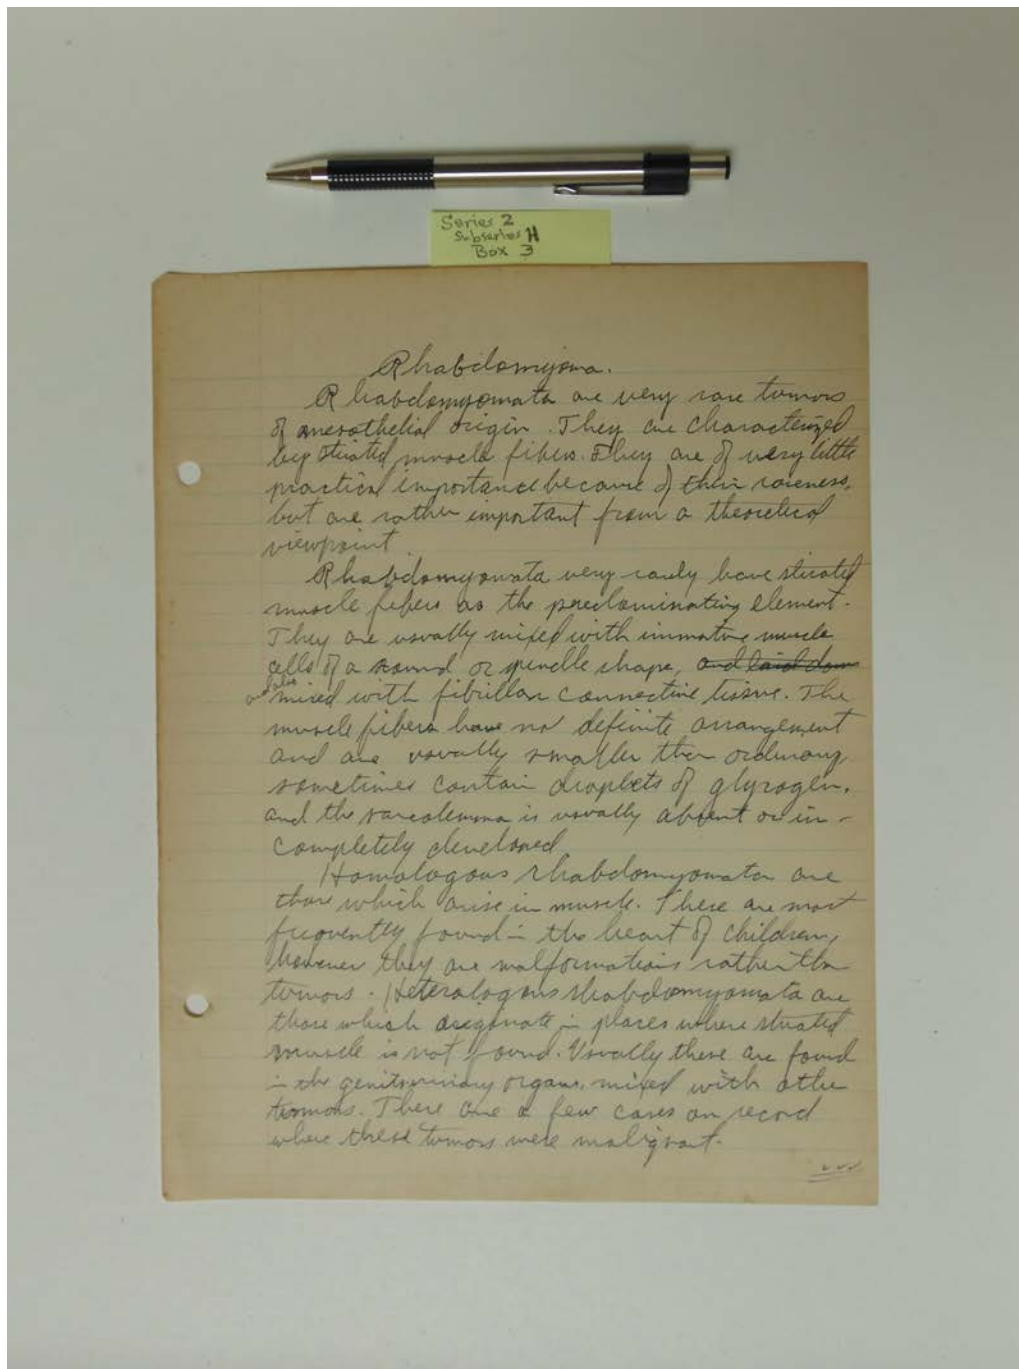 Series 2
Subseries H
Box 3
Rhabdomyoma.
Rhabdomyomata are very rare tumors
of mesothelial origin. They are characterized
by striated muscle fibers. They are of very little
practical importance because of their rareness,
but are rather important from a theoretical
viewpoint.
Rhabdomyomata very rarely have striated
muscle fibers as the predominating element.
They are usually mixed with immature muscle
cells of a round or spindle shape, and laid down
and also mixed with fibrillar connective tissue. The
muscle fibers have no definite arrangement
and are usually smaller than ordinary
sometimes contain droplets of glycogen,
and the sarcolemma is usually absent or in-
completely developed.
Homologous rhabdomyomata are
those which arise in muscle. These are most
frequently found in the heart of children,
however they are malformations rather than
tumors. Heterologous rhabdomyomata are
those which originate in places where striated
muscle is not found. Usually these are found
in the genitourinary organs, mixed with other
tumors. There are a few cases on record
where these tumors were malignant.